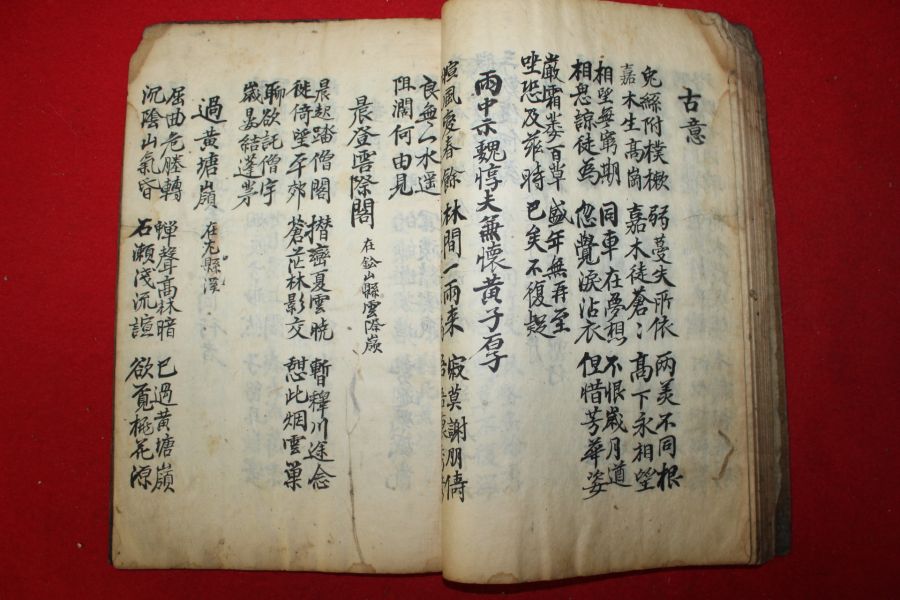 古意
兔絲附樸樕 弱蔓失所依 兩美不同根
嘉木生高崗 嘉木徒蒼〻 高下永相望
相望無窮期 同車在夢想 不恨歲月遒
相思諒徒為 忽覺淚沾衣 但惜芳華姿
嚴霜萎百草 盛年無再至
坐恐及茲時 已矣不復
雨中示魏惇夫兼懷黃子厚
暄風变春餘 林間一雨来 寂莫謝朋儔
良無山水遥
阻濶何由見
晨登雲際閣 在鉛山縣雲際嶺
晨起踏僧閣 攢巒夏雲曉 暫釋川途念
徙倚望平郊 蒼茫林影交 憩此烟雲巢
聊欲託僧宇
歲晏結蓬茅
過黃塘嶺 在尤縣溪
屈曲危塍轉 蟬聲高林暗 已過黃塘嶺
沉陰山氣昏 石瀨淺流諠 欲覓桃花源